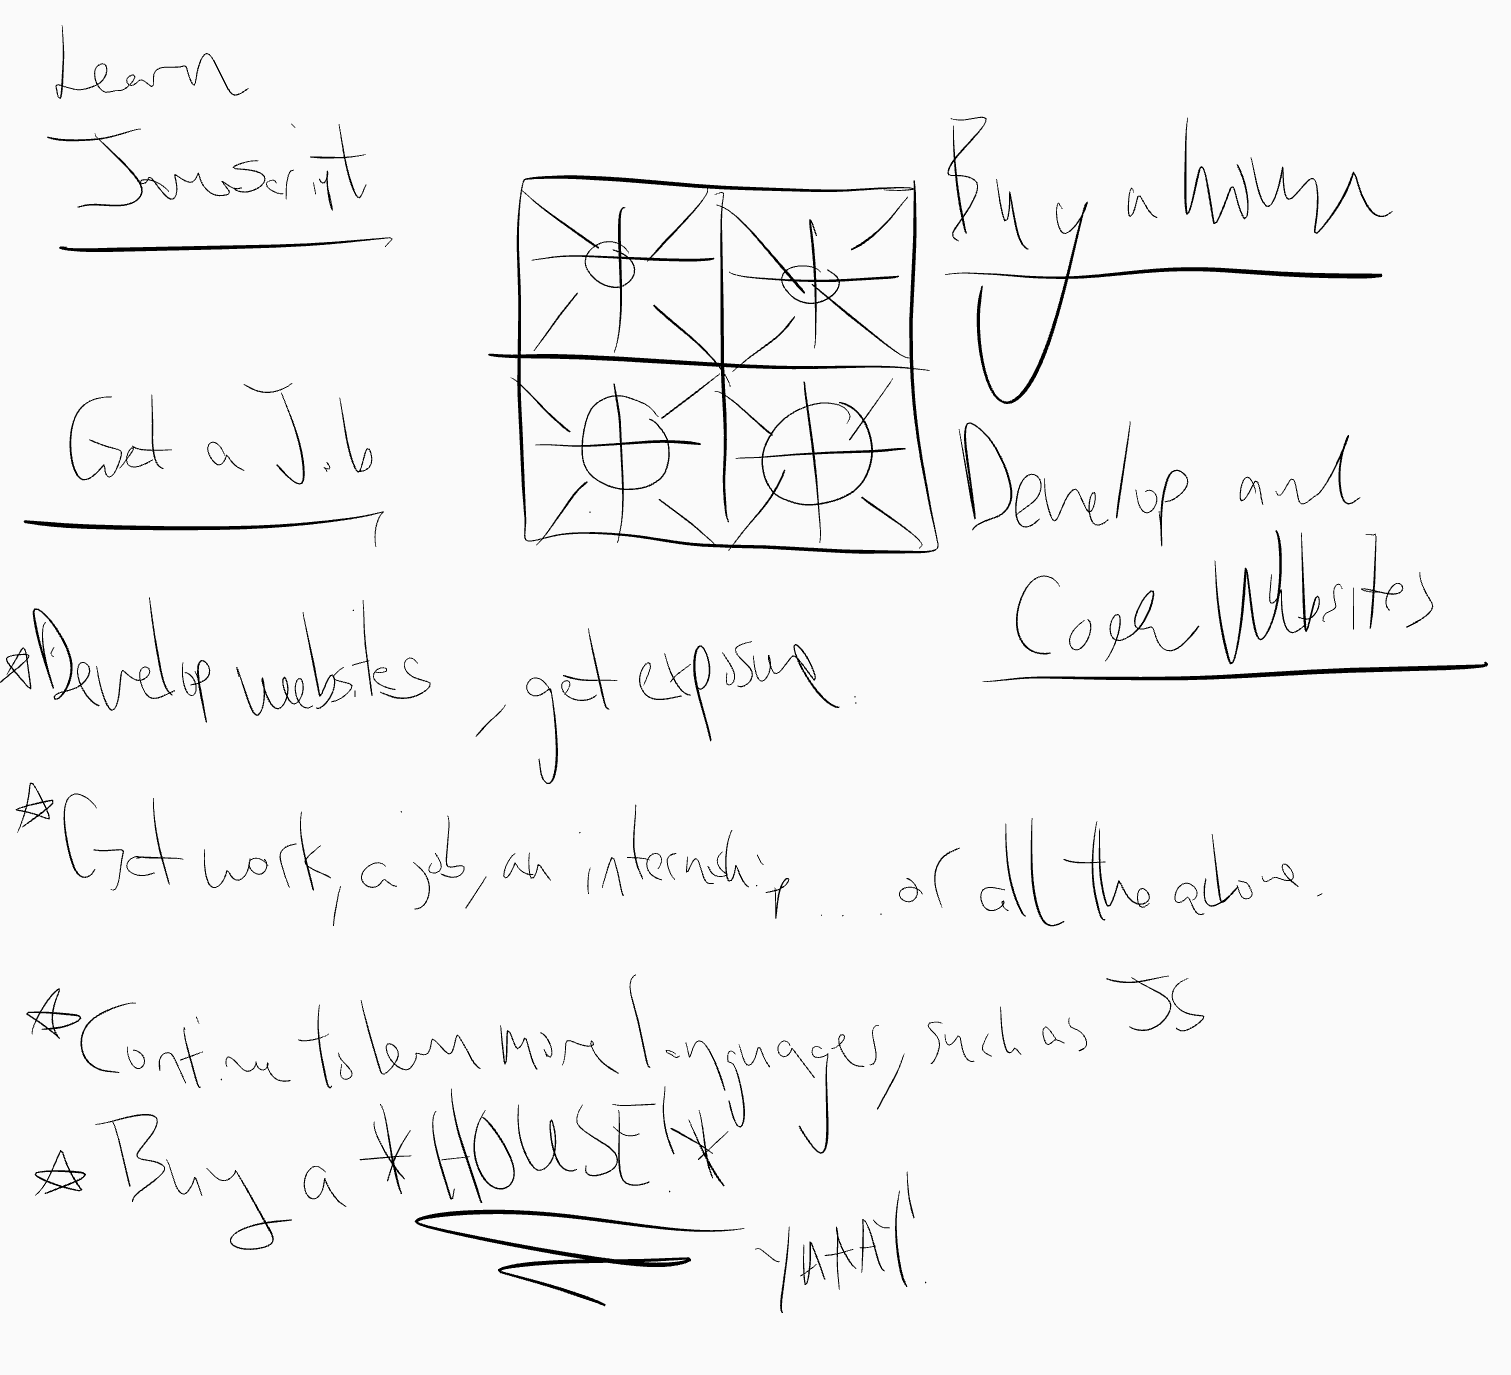 Learn
Javascript
Buy a house
Get a Job
Develop and
Code Websites
Develop websites, get exposure.
Get work, a job, an internship.... or all the above.
Continue to learn more languages, such as JS
Buy a *HOUSE!*
YAAAY!